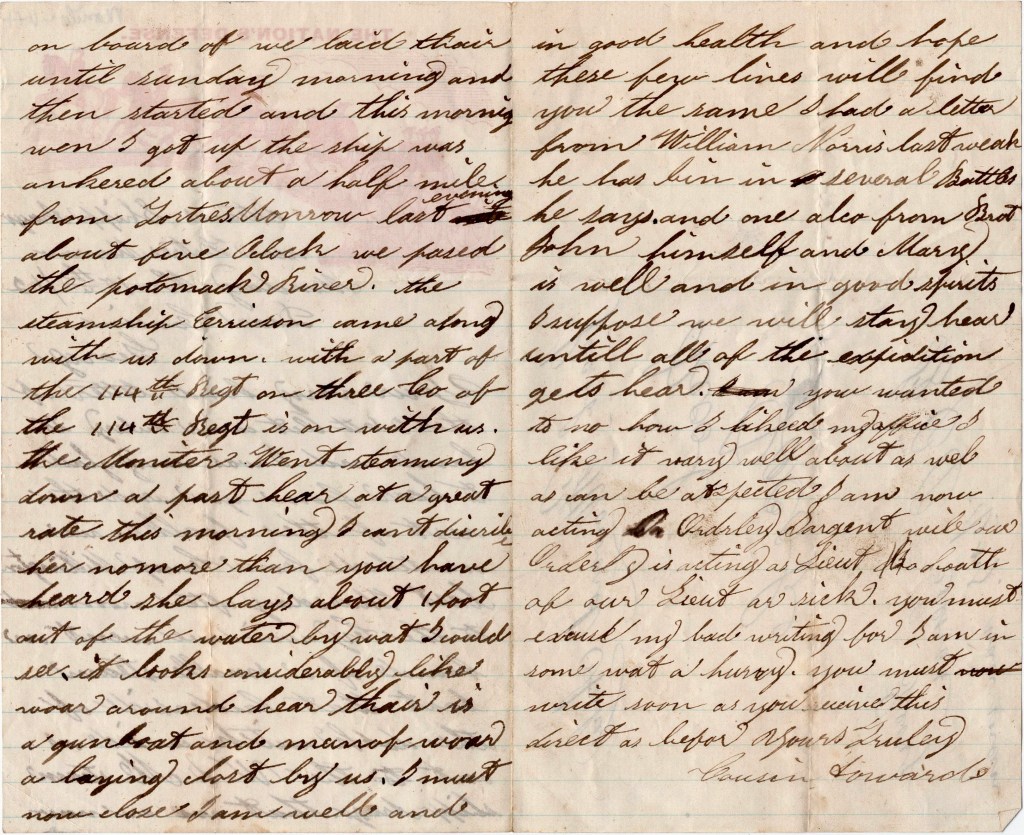 on board of we laid thair
until sunday morning and
then started and this mornig
wen I got up the ship was
ankered about a half mile
from FortresMonrow last evening
about five Oclock we pased
the potomack River. the
steamship Erricson came along
with us down. with a part of
the 114th Regt on three Co of
the 114th Regt is on with us.
the Moniter Went steaming
down a past hear at a great
rate this morning I cant discribe
her nomore than you have
heard she lays about 1 foot
out of the water by wat I could
see. it looks considerably like
woar around hear thair is
a gunboat and manof woar
a laying clost by us. I must
now close I am well and
in good health and hope
these few lines will find
you the same I had a letter
from William Norris last weak
he has bin in several Battles
he says. and one also from Brot
John himself and Mary
is well and in good spirits
I suppose we will stay hear
untill all of the expidition
gets hear. you wanted
to no how I likeed my office I
like it vary well about as wel
as can be axpected I am now
acting Ordrley Sargent wile our
Orderly is acting as Lieut,
of our Lieut ar sick. you must
excuse my bad writing for I am in
some wat a hurry. you must
write soon as you this
direct as befor Yours Truley
Cousin Howard
THE NATION'S DEFENSE.